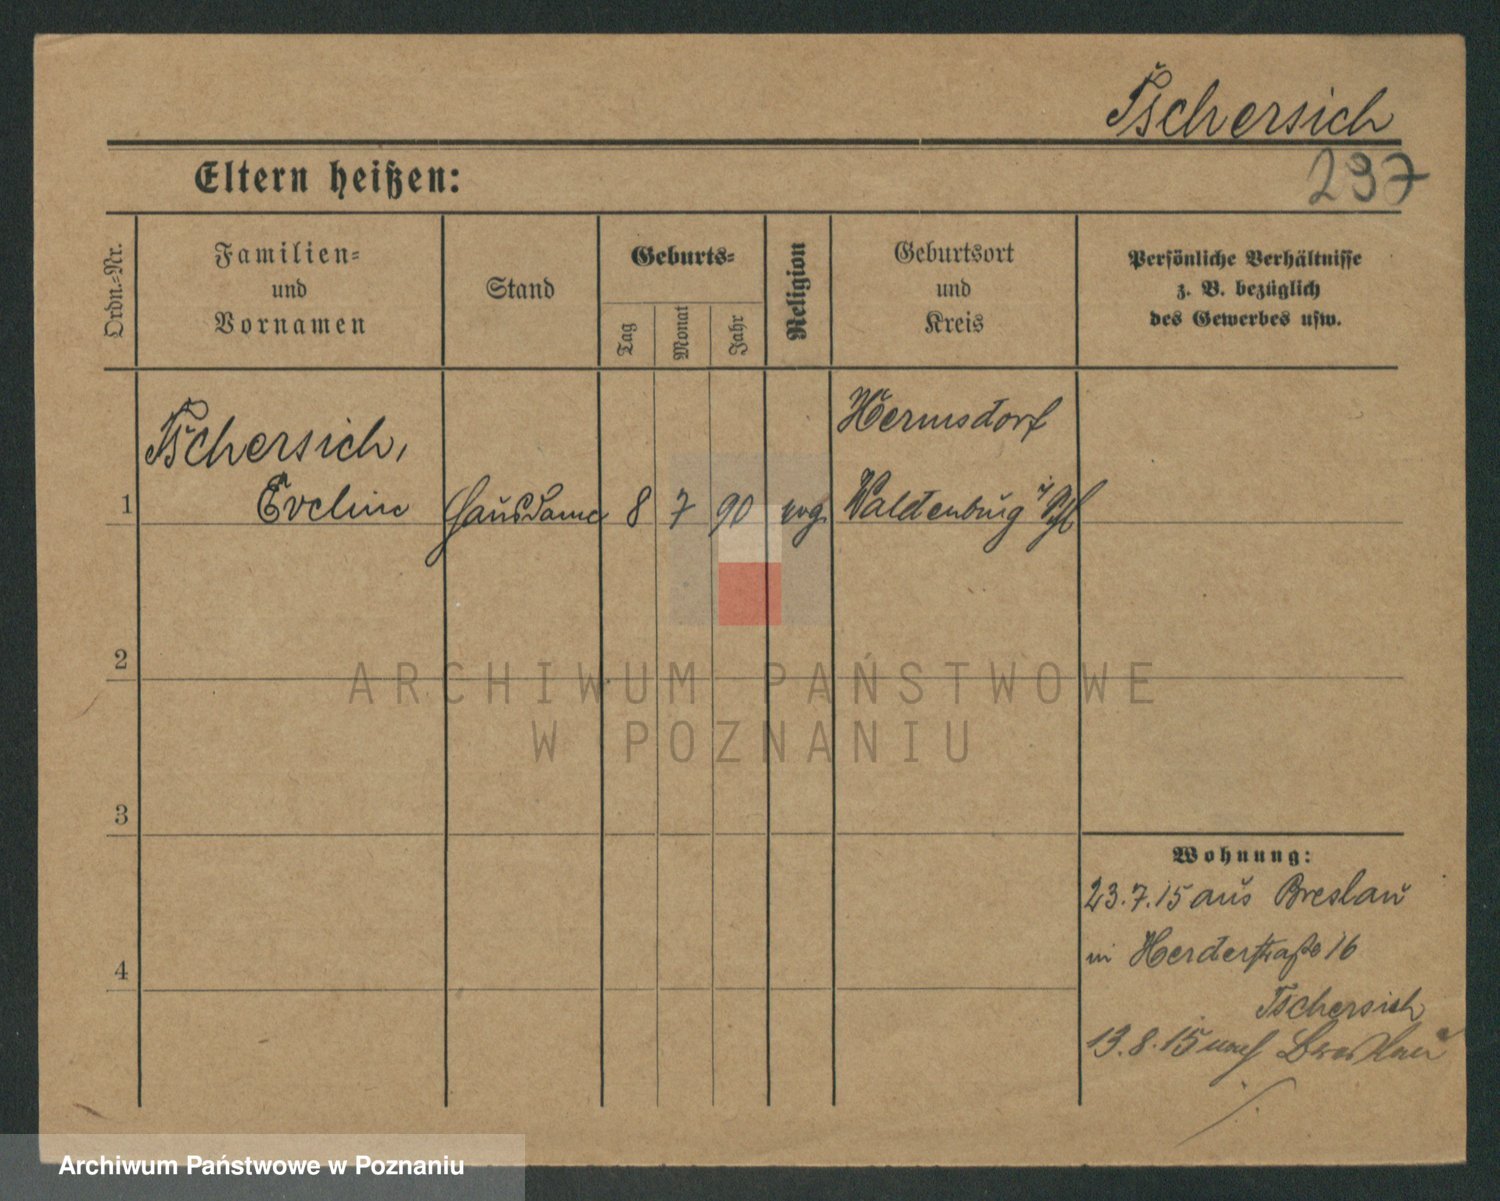 Tschersich
Eltern heißen:
237
Ordn.-Nr.
Familien-
und
Vornamen
Stand
Geburts-
Tag
Monat
Jahr
Religion
Geburtsort
und
Kreis
Persönliche Verhältnisse
z. B. bezüglich
des Gewerbes usw.
1
Tschersich,
Eveline
Hausdame
8
7
90
evg.
Hermsdorf
Waldenburg i/Schl
2
3
4
Wohnung:
23.7.15 aus Breslau
in Herderstraße 16
Tschersich
13.8.15 nach Breslau
ARCHIWUM PAŃSTWOWE
W POZNANIU
Archiwum Państwowe w Poznaniu